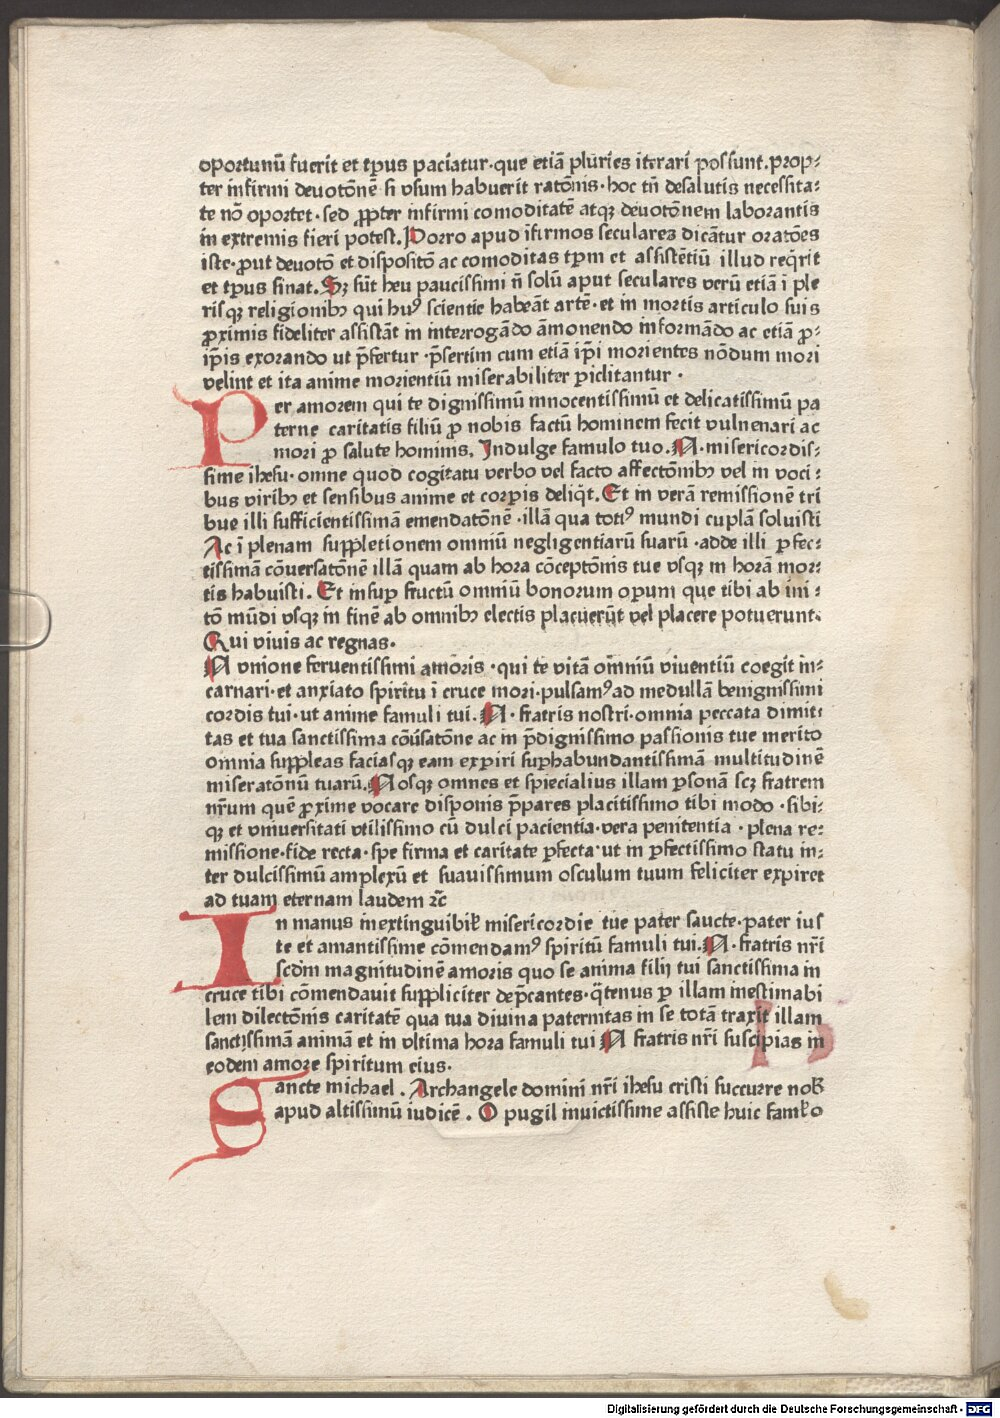 oportunū fuerit et tp̄us paciatur·que etiā pluries iterari possunt.prop⸗
ter infirmi deuotōnē si vsum habuerit ratōnis·hoc tn̄ desalutis necessita⸗
te nō oportet·sed ꝓpter infirmi comoditatē atqꝫ deuotōnem laborantis
in extremis fieri potest.Porro apud īfirmos seculares dicātur oratōes
iste·ꝓut deuotō et dispositō ac comoditas tp̄m et assistētiū illud req̄rit
et tp̄us sinat.Sꝫ sūt heu paucissimi n̄ solū aput seculares verū etiā ī ple
risqꝫ religionibꝫ qui huꝰ scientie habeāt artē·et in mortis articulo suis
ꝓximis fideliter assistāt in interrogādo āmonendo informādo ac etiā ꝓ⸗
ip̄is exorando ut p̄fertur·p̄sertim cum etiā ip̄i morientes nōdum mori
velint et ita anime morientiū miserabiliter ꝑiclitantur·
Per amorem qui te dignissimū innocentissimū et delicatissimū pa
terne caritatis filiū ꝓ nobis factū hominem fecit vulnerari ac
mori ꝓ salute hominis, Indulge famulo tuo.N·misericordis⸗
sime ih̄esu·omne quod cogitatu verbo vel facto affectōnibꝫ vel in voci⸗
bus viribꝫ et sensibus anime et corꝑis deliq̄t.Et in verā remissionē tri
bue illi sufficientissimā emendatōnē·illā qua totiꝰ mundi cuplā soluisti
Ac ī plenam suppletionem omniū negligentiarū suarū·adde illi ꝑfec⸗
tissimā cōuersatōnē illā quam ab hora cōceptōnis tue vsqꝫ in horā mor⸗
tis habuisti.Et insuꝑ fructū omniū bonorum oꝑum que tibi ab ini⸗
tō mūdi vsqꝫ in finē ab omnibꝫ electis placuerūt vel placere potuerunt.
Qui viuis ac regnas.
N vnione feruentissimi amoris·qui te vitā omniū viuentiū coegit in⸗
carnari·et anxiato spiritu ī cruce mori·pulsamꝰ ad medullā benignissimi
cordis tui·ut anime famuli tui.N·fratris nostri·omnia peccata dimit⸗
tas et tua sanctissima cōūsatōne ac in p̄dignissimo passionis tue merito
omnia suppleas faciasqꝫ eam exꝑiri suꝑhabundantissimā multitudinē
miseratōnū tuarū.Nosqꝫ omnes et spiecialius illam ꝑsonā scꝫ fratrem
nr̄um quē ꝓxime vocare disponis p̄pares placitissimo tibi modo·sibi⸗
qꝫ et vniuersitati vtilissimo cū dulci pacientia·vera penitentia·plena re⸗
missione·fide recta·spe firma et caritate ꝑfecta·ut in ꝑfectissimo statu in⸗
ter dulcissimū amplexū et suauissimum osculum tuum feliciter expiret
ad tuam eternam laudem ⁊c̄
In manus inextinguibił misericordie tue pater saucte·pater ius
te et amantissime cōmendamꝰ spiritū famuli tui.N·fratris nr̄i
scd̄m magnitudinē amoris quo se anima filij tui sanctissima in
cruce tibi cōmendauit suppliciter dep̄cantes·q̄tenus ꝑ illam inestimabi
lem dilectōnis caritatē qua tua diuina paternitas in se totā traxit illam
sanctissimā animā et in vltima hora famuli tui N fratris nr̄i suscipias in
eodem amore spiritum eius.
Sancte michael.Archangele domini nr̄i ih̄esu cristi succurre nob̄
apud altissimū iudicē.O pugil inuictissime assiste huic famło
Digitalisierung gefördert durch die Deutsche Forschungsgemeinschaft - DFG